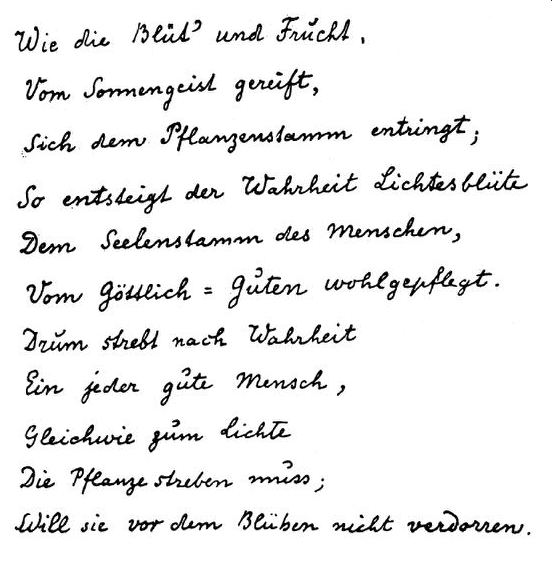 Wie die Blüt' und Frucht,
Vom Sonnengeist gereift,
Sich dem Pflanzenstamm entringt;
So entsteigt der Wahrheit Lichtesblüte
Dem Seelenstamm des Menschen,
Vom Göttlich = Guten wohlgepflegt.
Drum strebt nach Wahrheit
Ein jeder gute Mensch,
Gleichwie zum Lichte
Die Pflanze streben muss;
Will sie vor dem Blühen nicht verdorren.